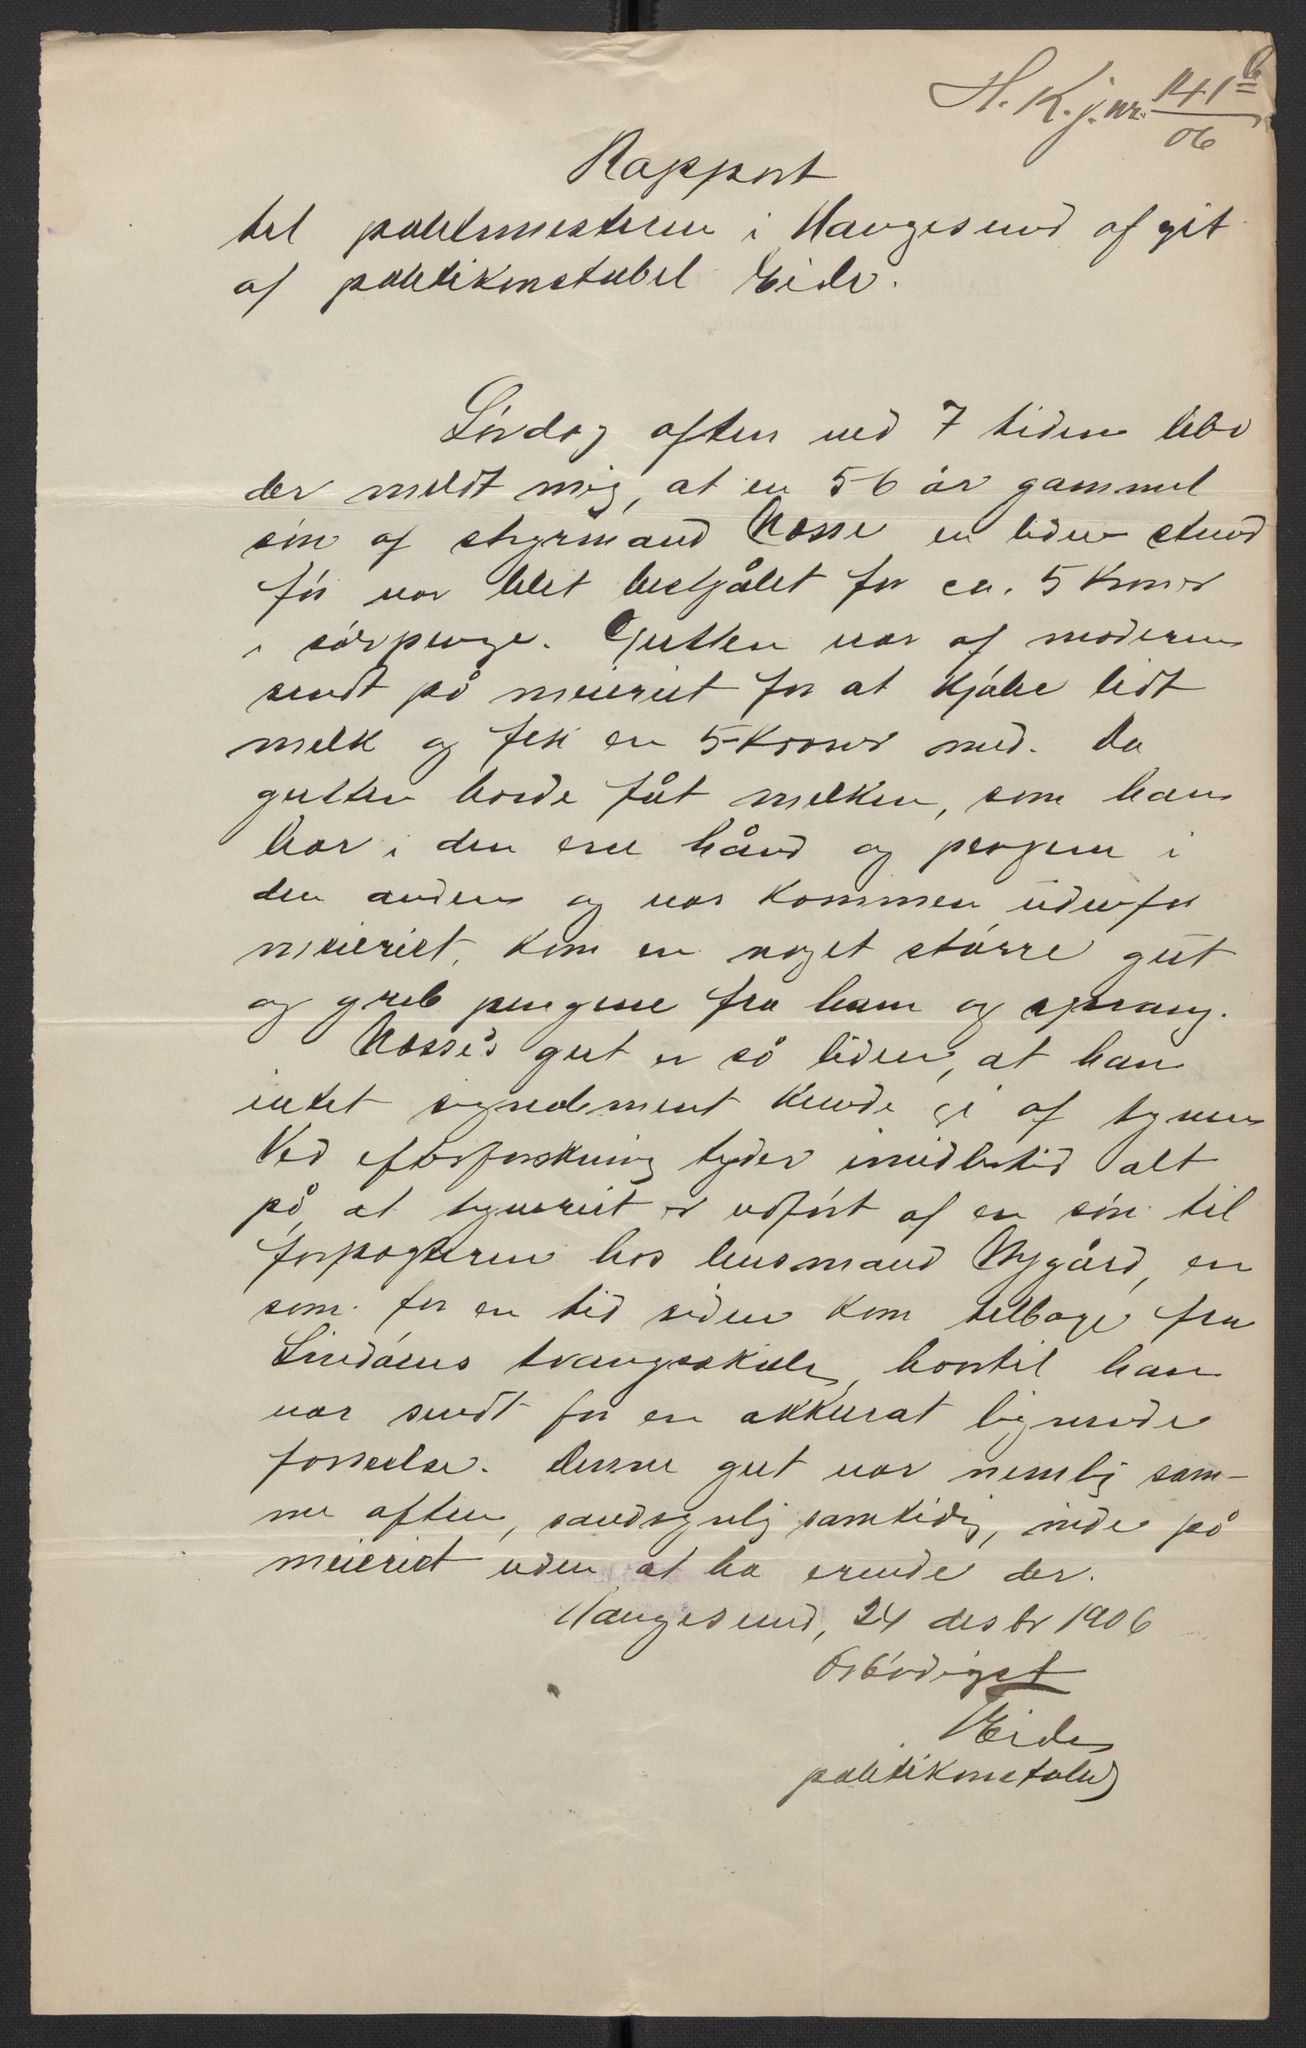 H. K. j. nr. 141 b
06
Rapport
til politimesteren i Haugesund afgit
af politikonstabel Eide.
Lørdag aften ved 7 tiden blev
der meldt mig, at en 5 6 år gammel
søn af styrmand Næsse en liden stund
før var blet bestjålet for ca. 5 kroner
i sølvpenge. Gutten var af moderen
sendt på meieriet for at kjøbe lidt
melk og fik en 5-kroner med. Da
gutten havde fåt melken, som han
bar i den ene hånd og pengene i
den anden og var kommen udenfor
meieriet, kom en noget større gut
og greb pengene fra ham og sprang.
Næsse's gut er så liden, at han
intet signalement kunde gi af tyven
Ved efterforskning tyder imidlertid alt
på, at tyveriet er udført af en søn til
forpagteren hos lensmand Nygård, en
som for en tid siden kom tilbage fra
Lindøens tvangsskole, hvortil han
var sendt for en akkurat lignende
forseelse. Denne gut var nemlig sam-
me aften, sandsynlig samtidig, inde på
meieriet uden at ha erende der.
Haugesund, 24 desbr 1906
Ærbødigst
Eide
politikonstabel